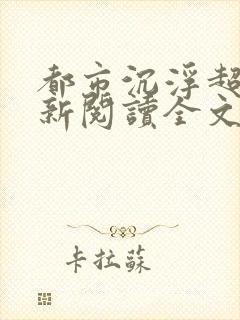 都市沉浮超
新閱讀全文
卡拉蘇